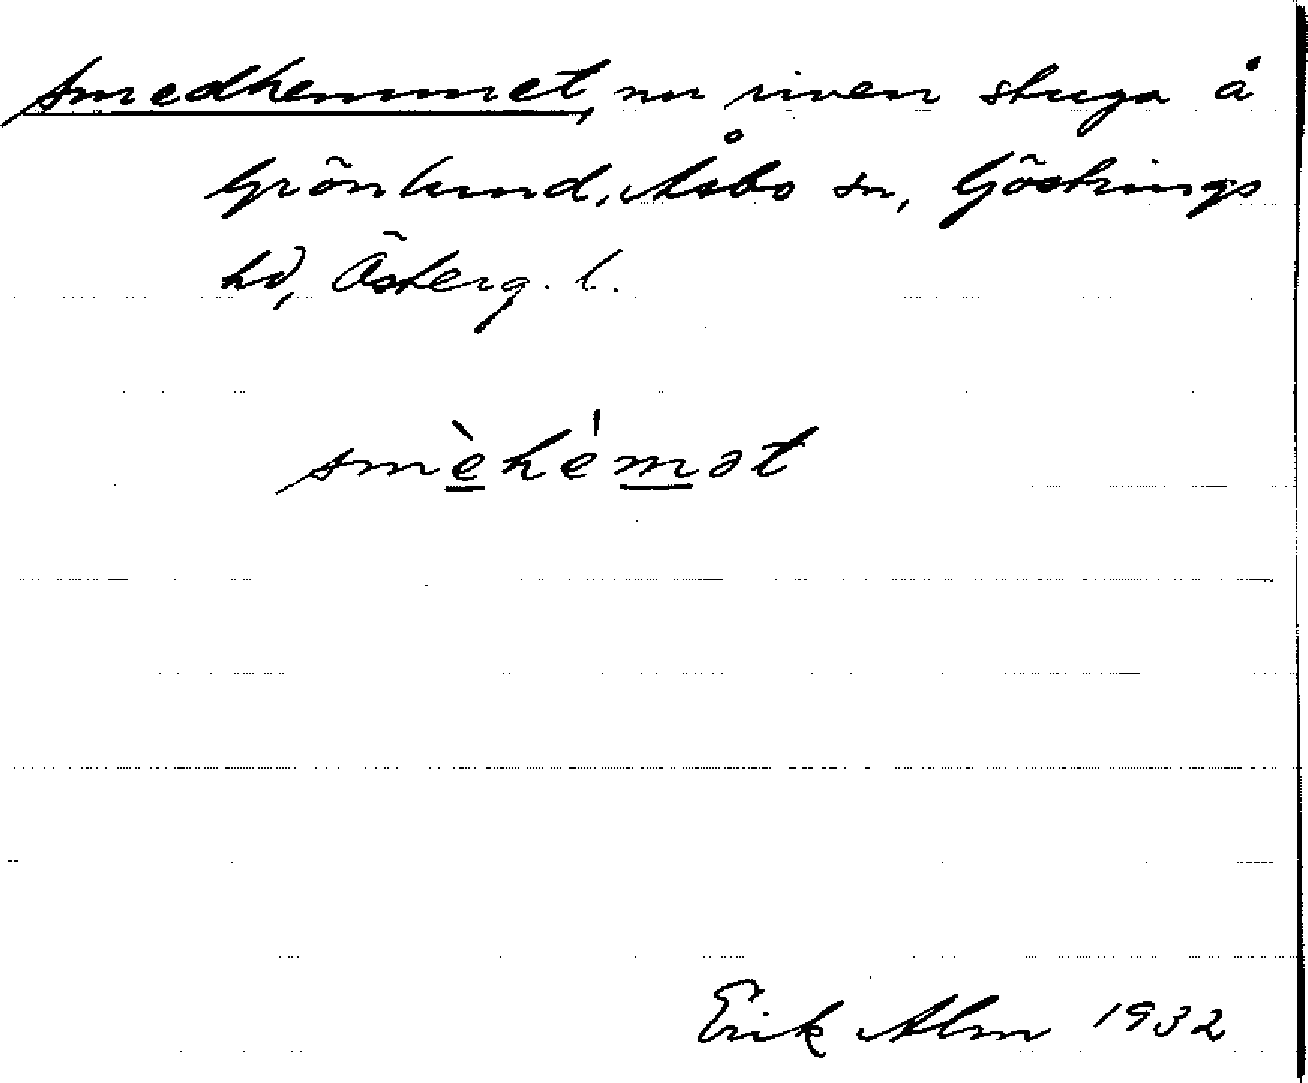 smedhemmet, nu riven stuga å
Grönlund, Åsbo sn, Göstrings
hd, Österg. l.
smèhémət
Erik Alm 1932